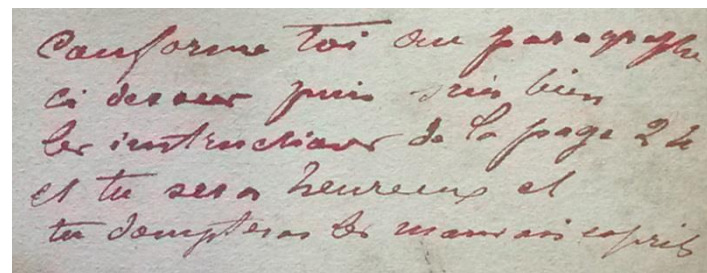 Conforme toi au paragraphe
ci dessus puis suis bien
les instructions de la page 24
et tu seras heureux et
tu dompteras les mauvais esprits